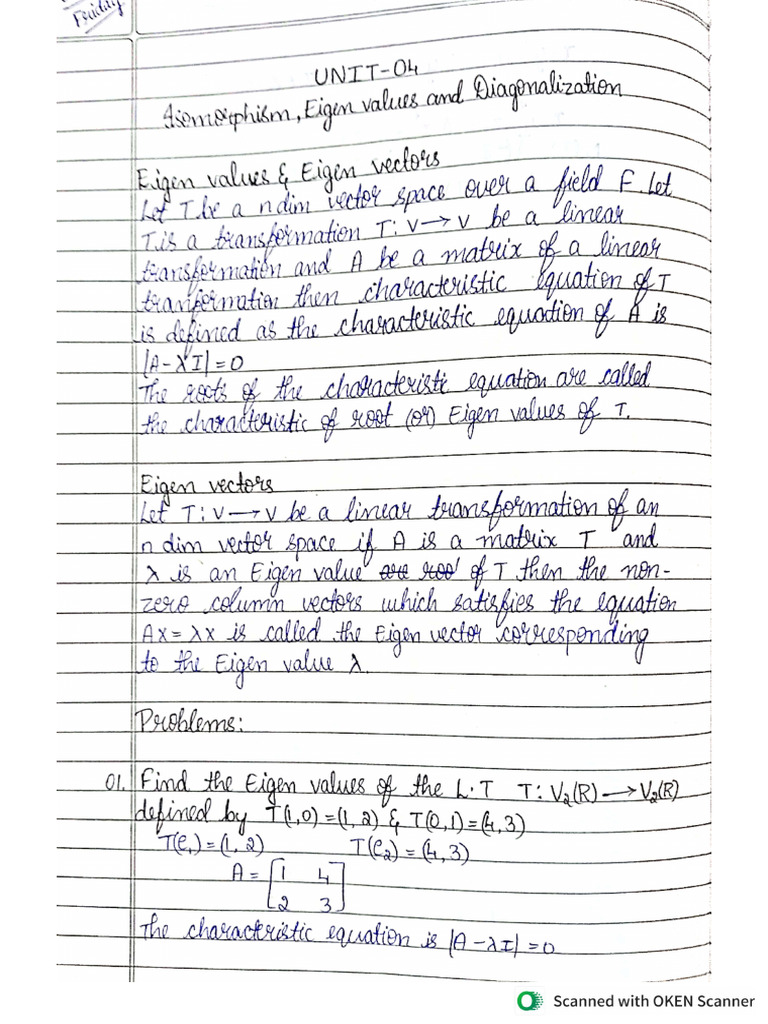 Friday
UNIT-04
Isomorphism, Eigen values and Diagonalization
Eigen values & Eigen vectors
Let T be a n dim vector space over a field F. Let
T is a transformation T: V → V be a linear
transformation and A be a matrix of a linear
tranformation then characteristic equation of T
is defined as the characteristic equation of A is
|A-λI|=0
The roots of the characteristic equation are called
the characteristic of root (or) Eigen values of T.
Eigen vectors
Let T: V → V be a linear transformation of an
n dim vector space if A is a matrix T and
λ is an Eigen value of T then the non-
zero column vectors which satisfies the equation
Ax = λx is called the Eigen vector corresponding
to the Eigen value λ.
Problems:
01. Find the Eigen values of the L.T T: V₂(R) → V₂(R)
defined by T(1,0)=(1,2) & T(0,1)=(4,3)
T(e₁)=(1,2) T(e₂)=(4,3)
A = [1 4
2 3]
The characteristic equation is |A-λI|=0
Scanned with OKEN Scanner